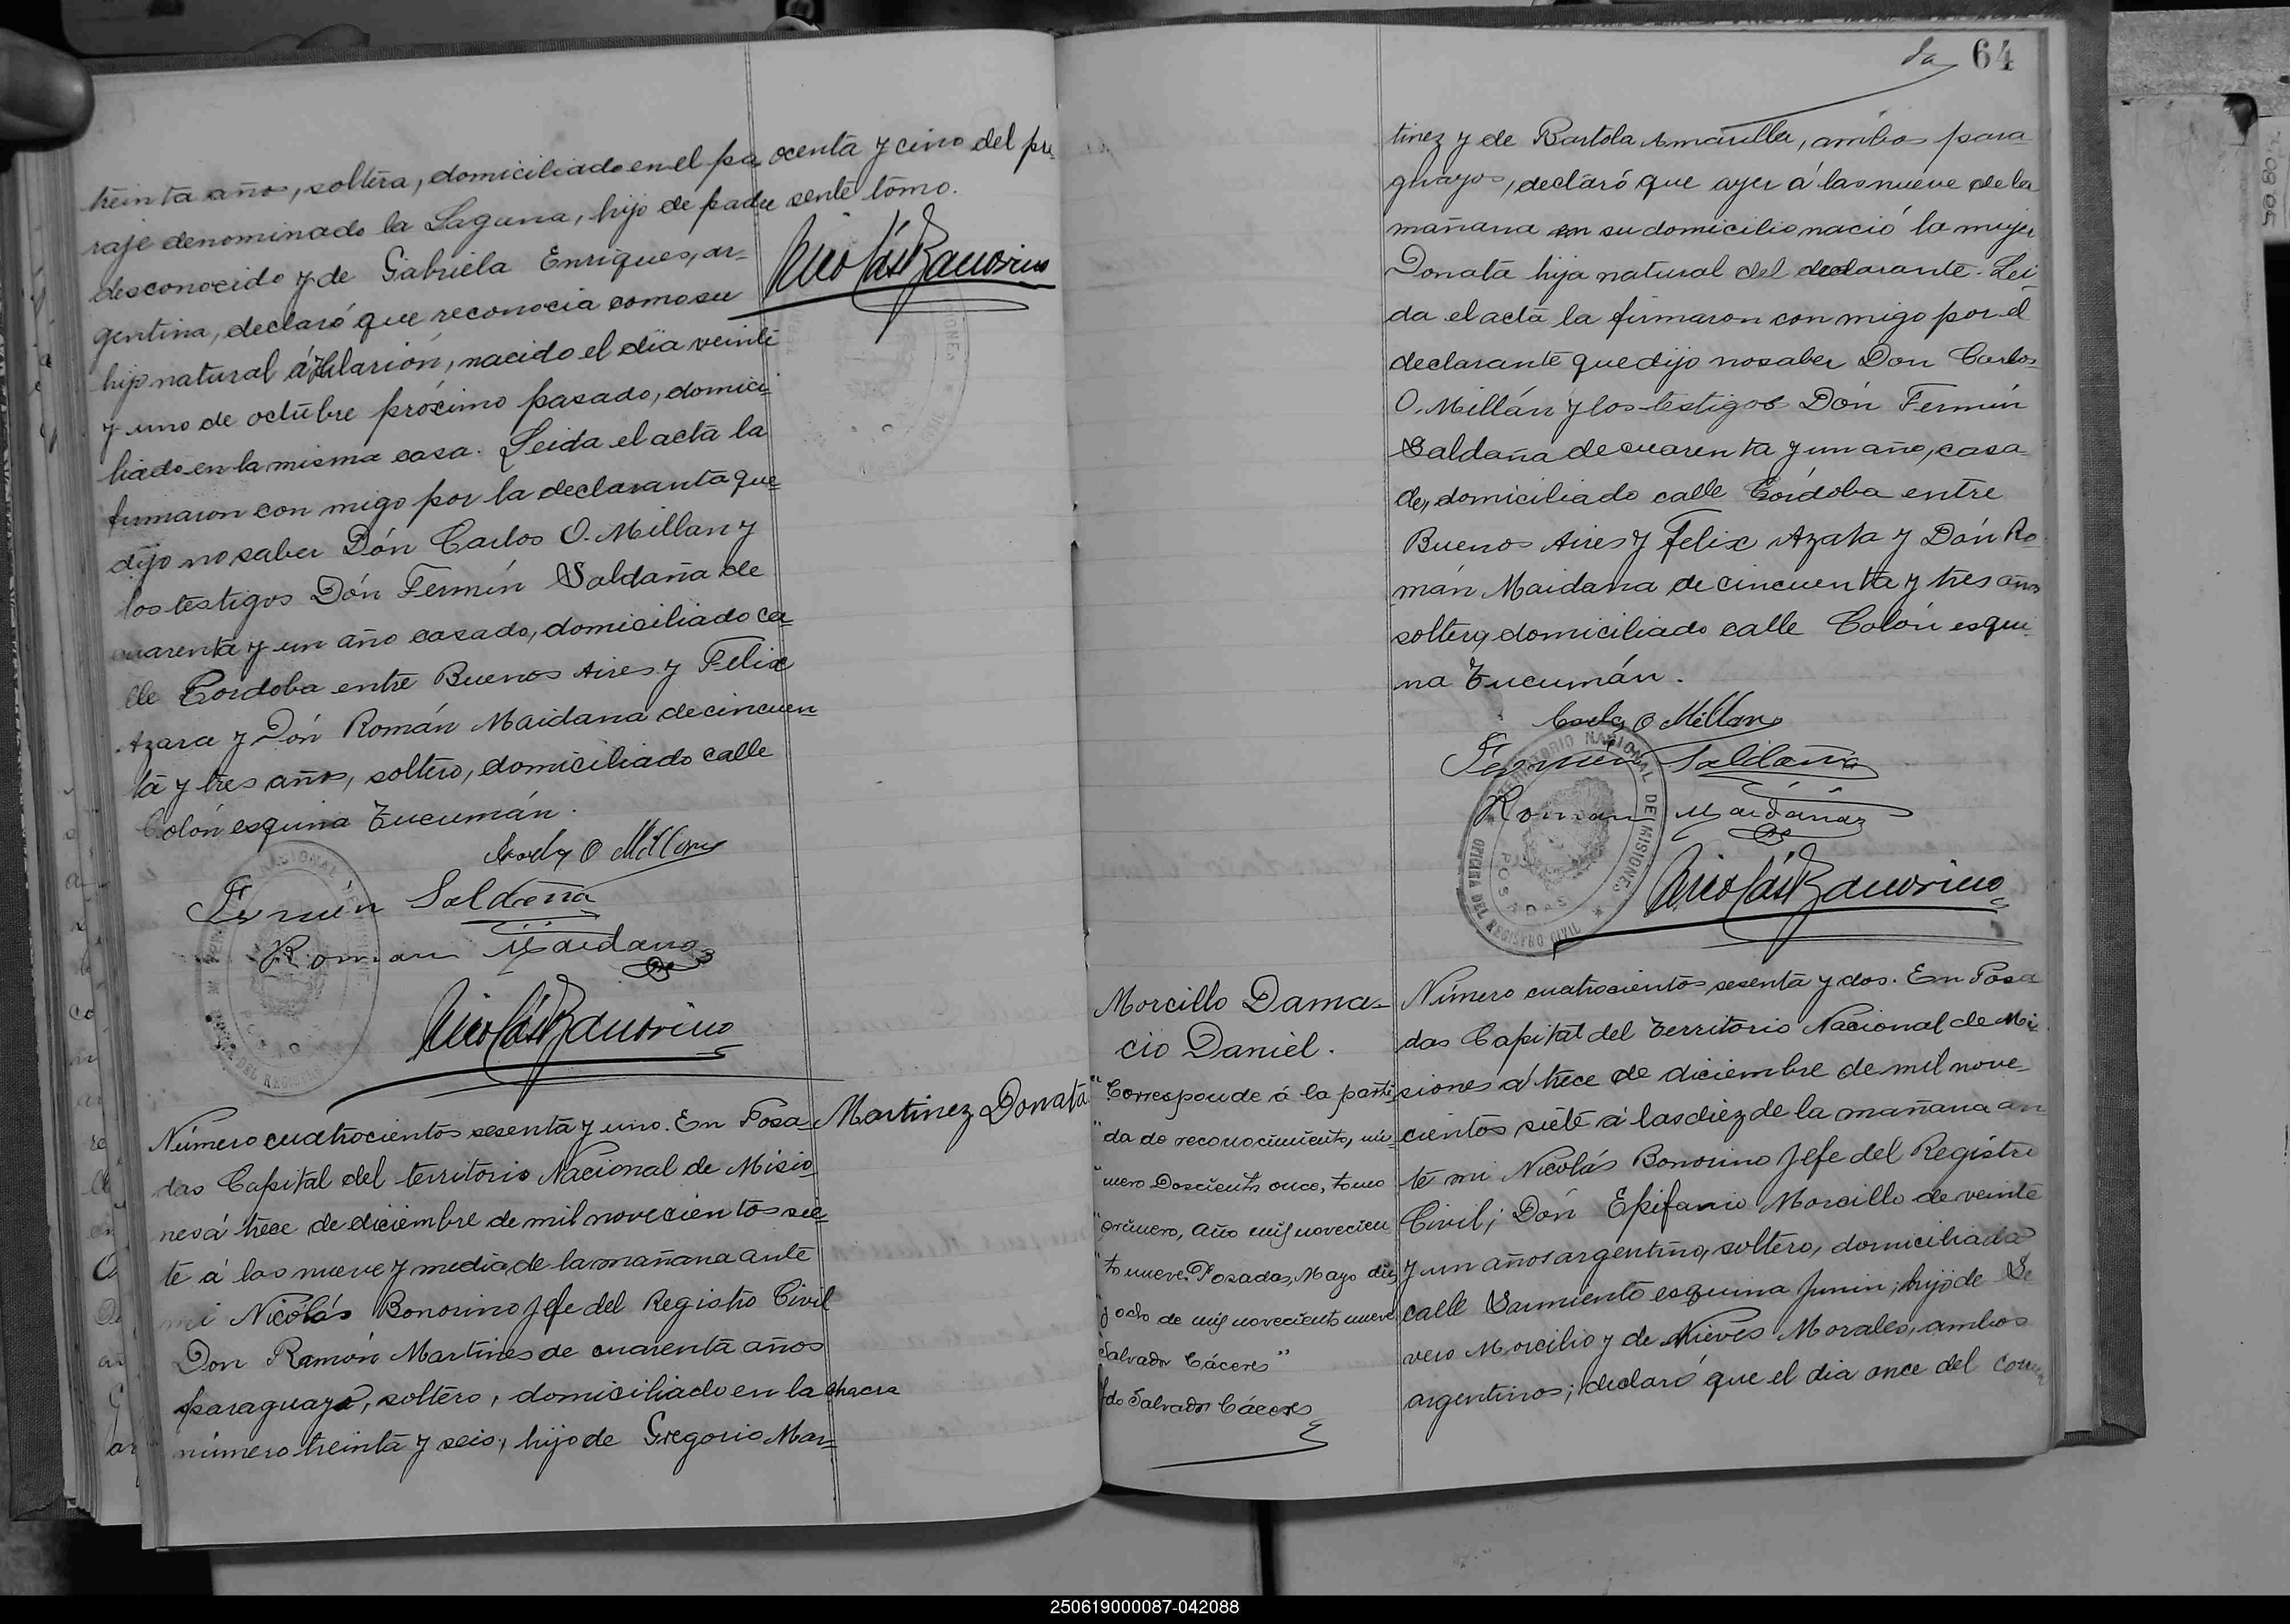 treinta años, soltera, domiciliado en el pa
raje denominado la Laguna, hijo de padre
desconocido y de Gabriela Enriques, ar-
gentina, declaró que reconocia como su
hijo natural á Hilarión, nacido el dia veinte
y uno de octubre próximo pasado, domici-
liado en la misma casa. Leida el acta la
firmaron con migo por la declaranta que
dijo no saber Dón Carlos O. Millan y
los testigos Dón Fermín Saldaña de
cuarenta y un año casado, domiciliado ca-
lle Cordoba entre Buenos Aires y Felix
Azara y Dón Román Maidana de cincuen-
ta y tres años, soltero, domiciliado calle
Colón esquina Tucumán.
Carlos O Millan
Fermín Saldaña
Roman Maidana
Nicolás Bonorino
Número cuatrocientos sesenta y uno. En Posa-
das Capital del territorio Nacional de Misio
nes á trece de diciembre de mil novecientos sie-
te á las nueve y media de la mañana ante
mi Nicolás Bonorino Jefe del Registro Civil
Don Ramón Martines de cuarenta años
paraguayo, soltero, domiciliado en la chacra
número treinta y seis, hijo de Gregorio Mar-
ocenta y cinco del pre-
sente tomo.
Nicolás Bonorino
Martinez Donata
64
tinez y de Bartola Amarilla, ambos para-
guayos, declaró que ayer á las nueve de la
mañana en su domicilio nació la mujer
Donata hija natural del declarante. Lei
da el acta la firmaron con migo por el
declarante que dijo no saber Don Carlos
O. Millán y los testigos Dón Fermín
Saldaña de cuarenta y un año, casa-
do, domiciliado calle Córdoba entre
Buenos Aires y Felix Azara y Dón Ro-
mán Maidana de cincuenta y tres años
soltero, domiciliado calle Colón esqui-
na Tucumán.
Carlos O Millan
Fermín Saldaña
Roman Maidana
TERRITORIO NACIONAL DE MISIONES
OFICINA DEL REGISTRO CIVIL
POSADAS
Nicolás Bonorino
Morcillo Dama-
cio Daniel.
"Corresponde á la parti-
"da de reconocimiento, nú-
"mero Doscientos once, tomo
"primero, año mil novecien
"to nueve. Posadas, Mayo diez
"y ocho de mil novecientos nueve
"Salvador Cáceres"
fdo Salvador Cáceres
Número cuatrocientos sesenta y dos. En Posa
das Capital del Territorio Nacional de Mi-
siones á trece de diciembre de mil nove-
cientos siete á las diez de la mañana an
te mi Nicolás Bonorino Jefe del Registro
Civil; Dón Epifanio Morcillo de veinte
y un años argentino, soltero, domiciliado
calle Sarmiento esquina Junin; hijo de Se
vero Morcilio y de Nieves Morales, ambos
argentinos; declaró que el dia once del corrien
250619000087-042088